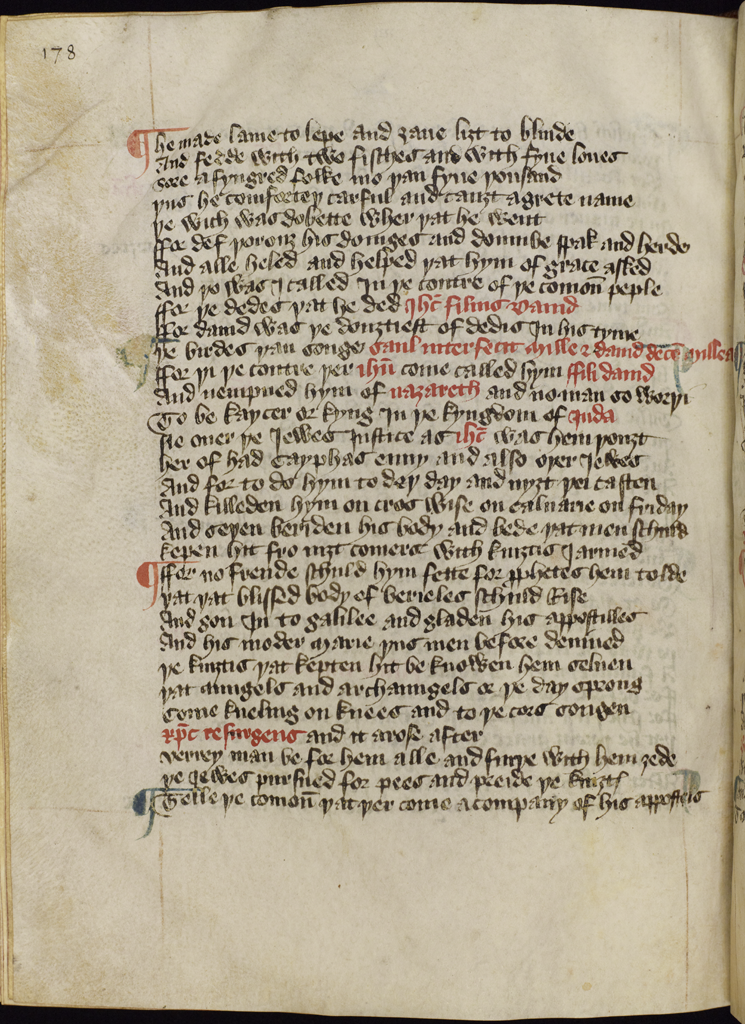 178
¶ he made lame to lepe and ȝaue liȝt to blinde
And fedde with two fisches and with fyue loues
Sore afyngred folke mo þan fyue þousand
þus he comforteþ carful and cauȝt a grete name
þe wich was dobette wher þat he went
ffor def þorouȝ his doinges and doumbe spak and herde
And alle heled and helped þat hym of grace asked
And þo was I called In þe contre of þe comoun peple
ffor þe dedes þat he ded Ihc filius dauid
ffor dauid was þe douȝtiest of dedis In his tyme
þe birdes þan songe Saul interfecit mille & dauid decem millea
ffor þi þe contre þer ihu come called hym ffili dauid
And nempned hym of nazareth and no man so worþi
To be kaycer or kyng In þe kyngdom of Iuda
Ne ouer þe Iewes Iustice as ihc was hem þouȝt
her of had Cayphas enuy and also oþer Iewes
And for to do hym to deþ day and nyȝt þei casten
And killeden hym on cros wise on caluarie on friday
And seþen beriden his body and bede þat men schuld
kepen hit fro niȝt comers with kniȝtis Iarmed
¶ ffor no frende schuld hym fette for prophetes hem tolde
þat þat blissed body of berieles schuld Rise
And gon In to galilee and gladen his appostilles
And his moder Marie þus men before demued
þe kniȝtis þat kepten hit be knowen hem seluen
þat aungels and archaungels or þe day sprong
Come kneling on knees and to þe cors songen
xpc resurgens and it arose after
verrey man be for hem alle and furþe with hem ȝede
þe Iewes pursued for pees and preide þe kniȝtis
¶ Telle þe comoun þat þer come a company of his appostels